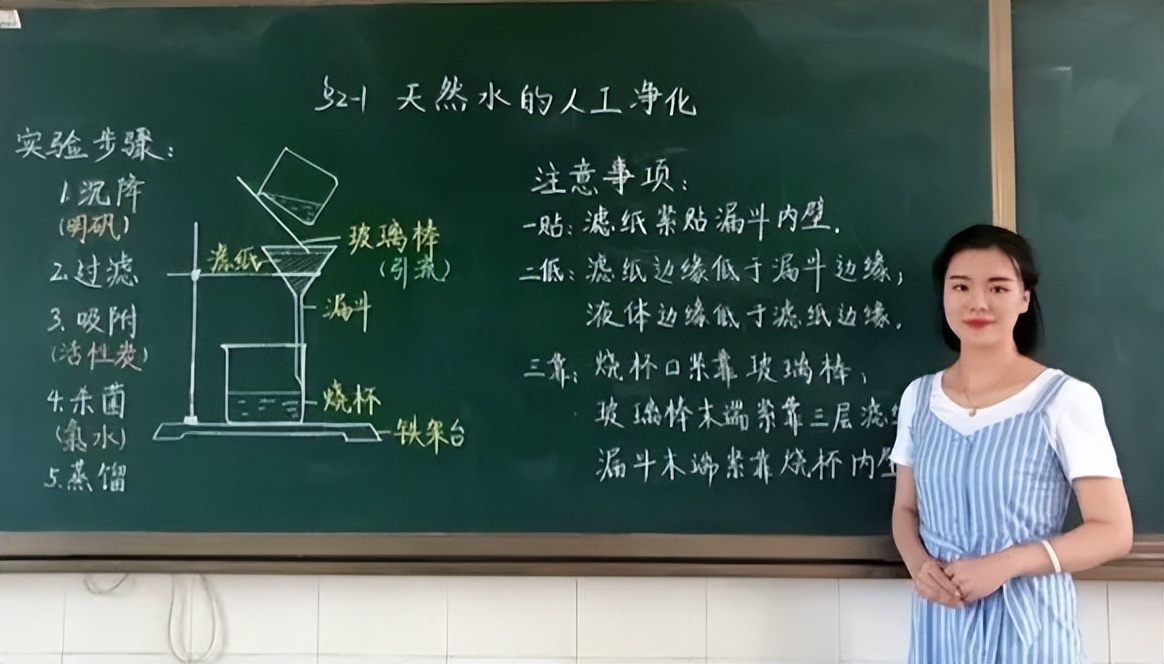 §2-1 天然水的人工净化
实验步骤:
1.沉降
(明矾)
2.过滤
3.吸附
(活性炭)
4.杀菌
(氯水)
5.蒸馏
滤纸
玻璃棒
(引流)
漏斗
烧杯
铁架台
注意事项:
一贴:滤纸紧贴漏斗内壁.
二低:滤纸边缘低于漏斗边缘;
液体边缘低于滤纸边缘.
三靠:烧杯口紧靠玻璃棒;
玻璃棒末端紧靠三层滤
漏斗末端紧靠烧杯内壁